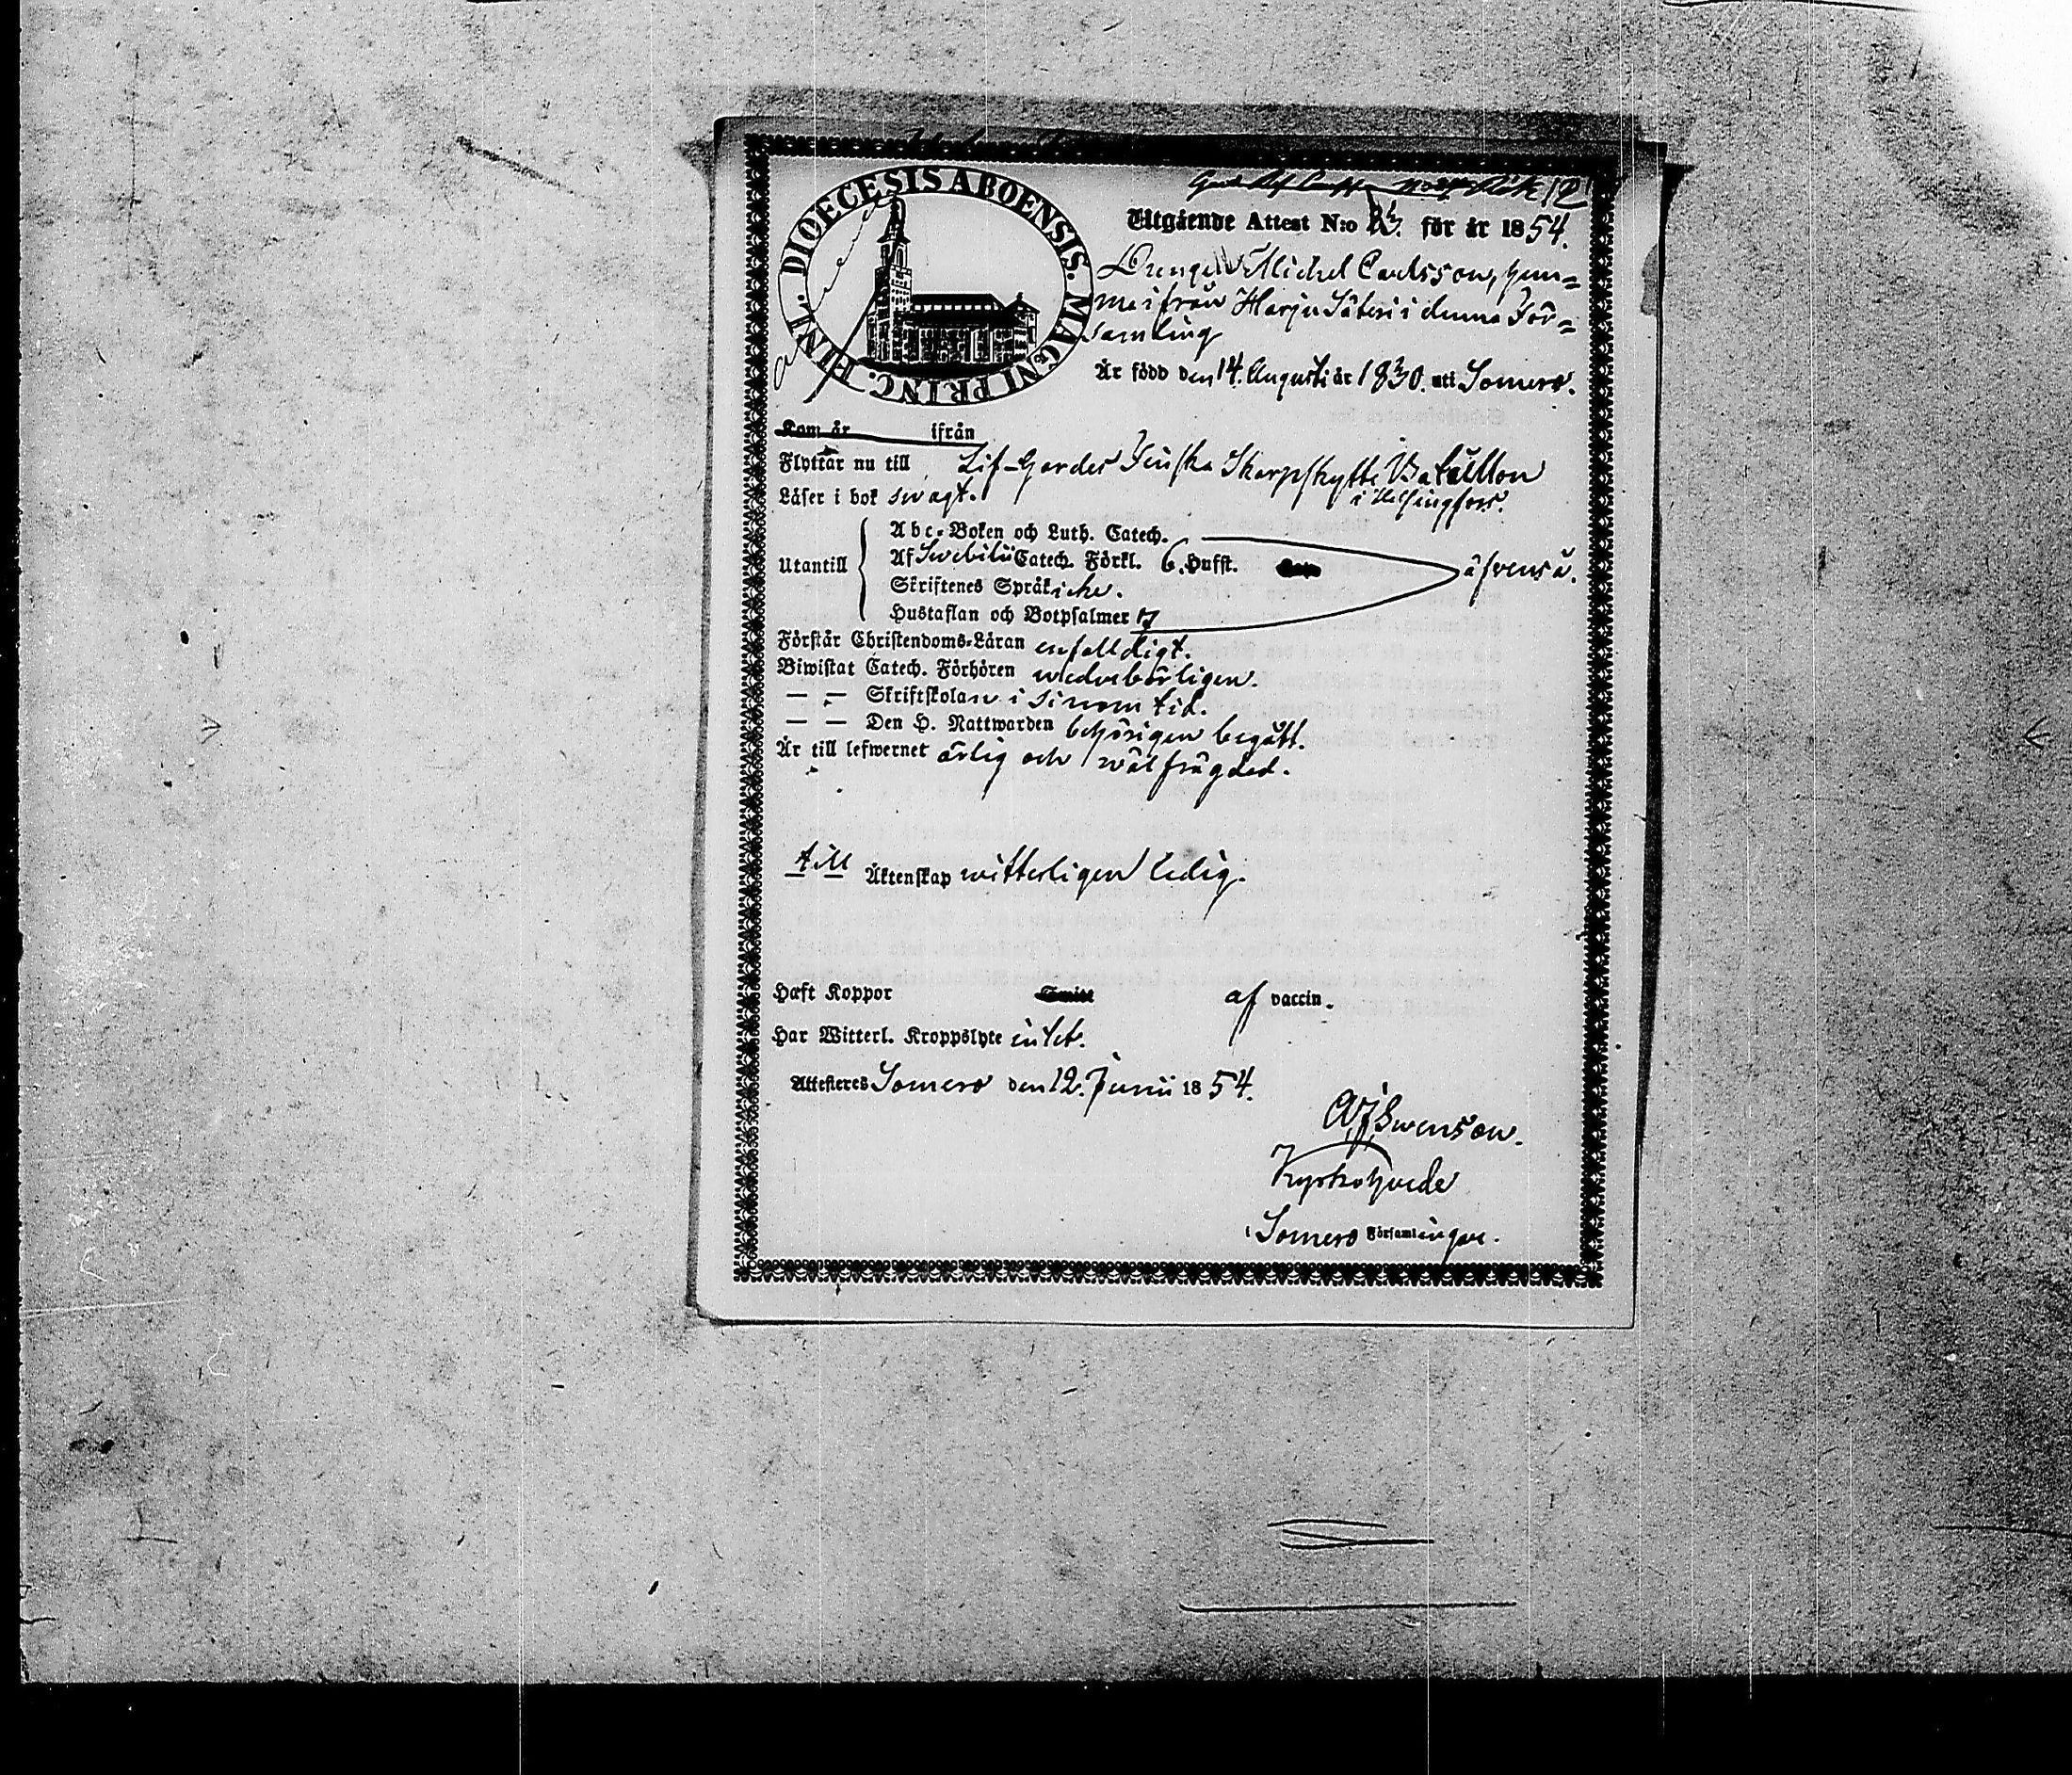 DIOECESIS ABOENSIS. MAGNI PRINC. FINL.
Utgående Attest N:o för år 1854.
Drengen Michel Carlsson, hem=
ma ifrån Harju Säteri i denna För=
samling
Är född den 14. Augusti år 1830. uti Somero.
Kom år ifrån
Flyttar nu till Lif-Gardes Finska Skarpskytte Bataillon
i Helsingfors.
Läser i bok swagt.
Utantill
Abc-Boken och Luth. Catech.
Af Swebilii Catech. Förkl. 6. Hufst.
Skriftenes Språk icke.
Hustaflan och Botpsalmer
äfvenså.
Förstår Christendoms-Läran enfalldigt.
Biwistat Catech. Förhören wederbörligen.
— — Skriftskolan i sinom tid.
— — Den H. Nattwarden behörigen begått.
Är till lefwernet ärlig och wälfrägdad.
till Äktenskap witterligen ledig.
Haft Koppor af vaccin.
Har Witterl. Kroppslyte intet.
Attesteres Somero den 12. Junii 1854.
A.J. Swenson.
Kyrkoherde
i Somero Församlingar.